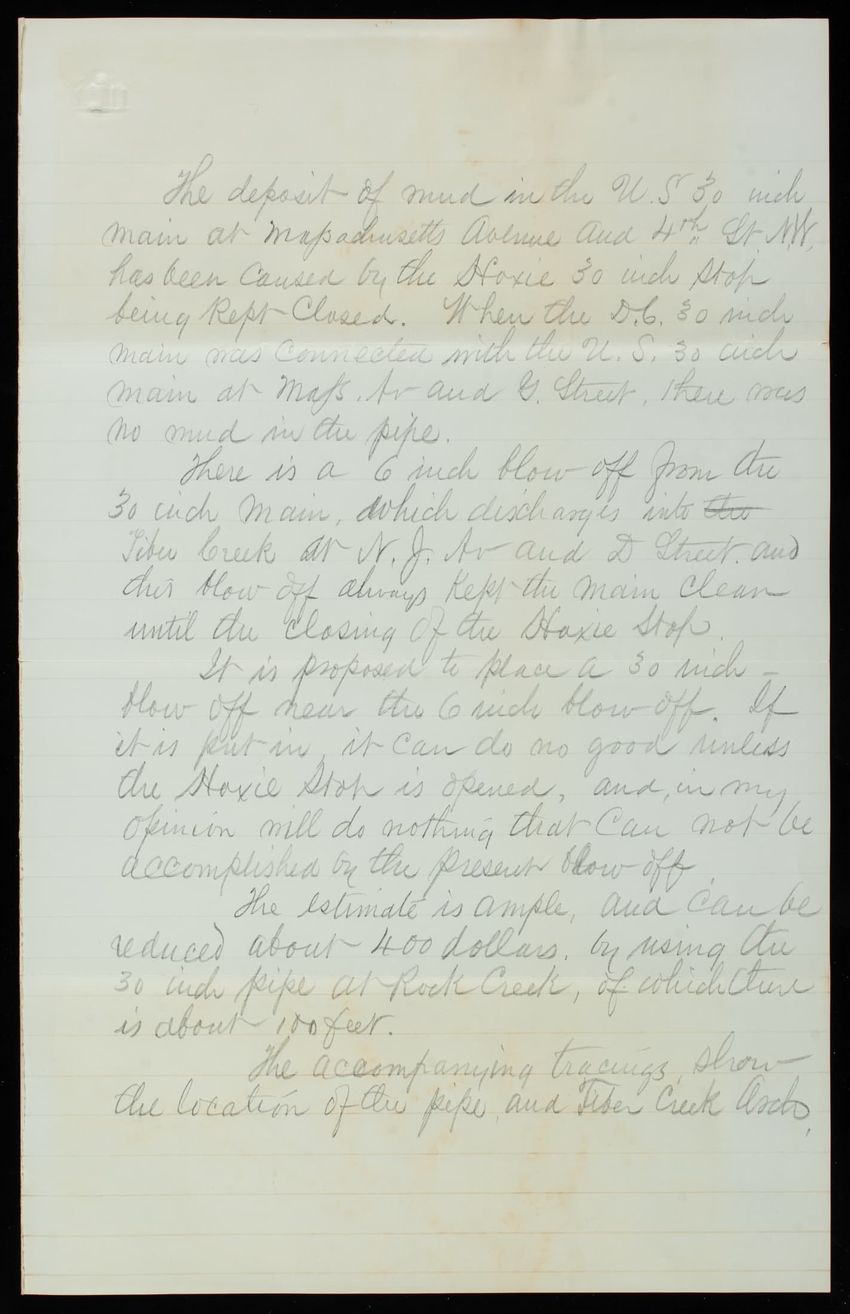 The deposit of mud in the U.S 30 inch
main at Massachusetts Avenue and 4th St. N.W.
has been caused by the Hoxie 30 inch Stop
being Kept Closed. When the D.C. 30 inch
main was connected with the U.S. 30 inch
main at Mass. Av and G. Street, there was
no mud in the pipe.
There is a 6 inch blow off from the
30 inch Main, which discharges into the
Tiber Creek at N.J. Av and D Street. and
this blow off always Kept the main clean
until the closing of the Hoxie Stop.
It is proposed to place a 30 inch -
blow off near the 6 inch blow off. If
it is put in, it can do no good unless
the Hoxie Stop is opened, and, in my
opinion will do nothing that can not be
accomplished by the present blow off.
The estimate is ample, and can be
reduced about 400 dollars. by using the
30 inch pipe at Rock Creek, of which there
is about 100 feet.
The accompanying tracings, show
the location of the pipe, and Tiber Creek Arch,